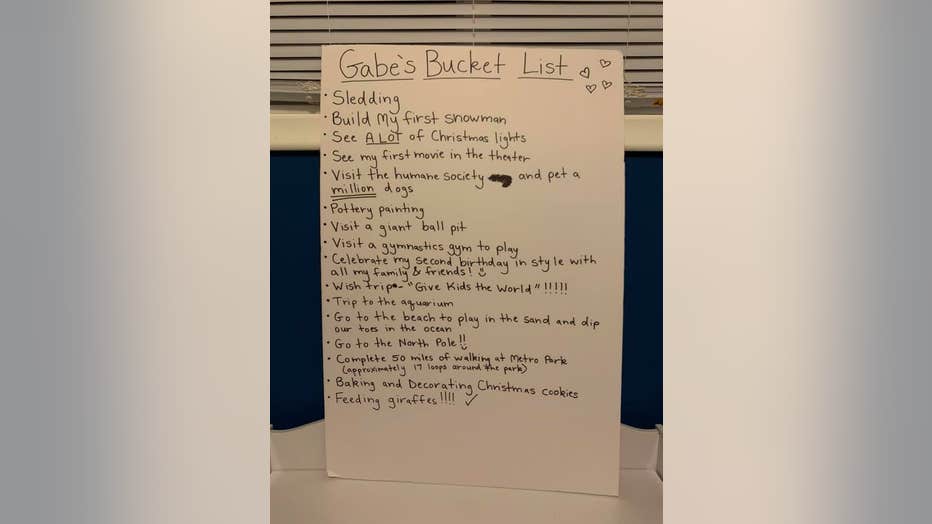 Gabe's Bucket List
• Sledding
• Build My first snowman
• See A LOT of Christmas lights
• See my first movie in the theater
• Visit the humane society and pet a
million dogs
• Pottery painting
• Visit a giant ball pit
• Visit a gymnastics gym to play
• Celebrate my second birthday in style with
all my family & friends!
• Wish trip - "Give Kids the World" !!!!!
• Trip to the aquarium
• Go to the beach to play in the sand and dip
our toes in the ocean
• Go to the North Pole!!
• Complete 50 miles of walking at Metro Park
(approximately 17 loops around the park)
• Baking and Decorating Christmas cookies
• Feeding giraffes!!!! ✓